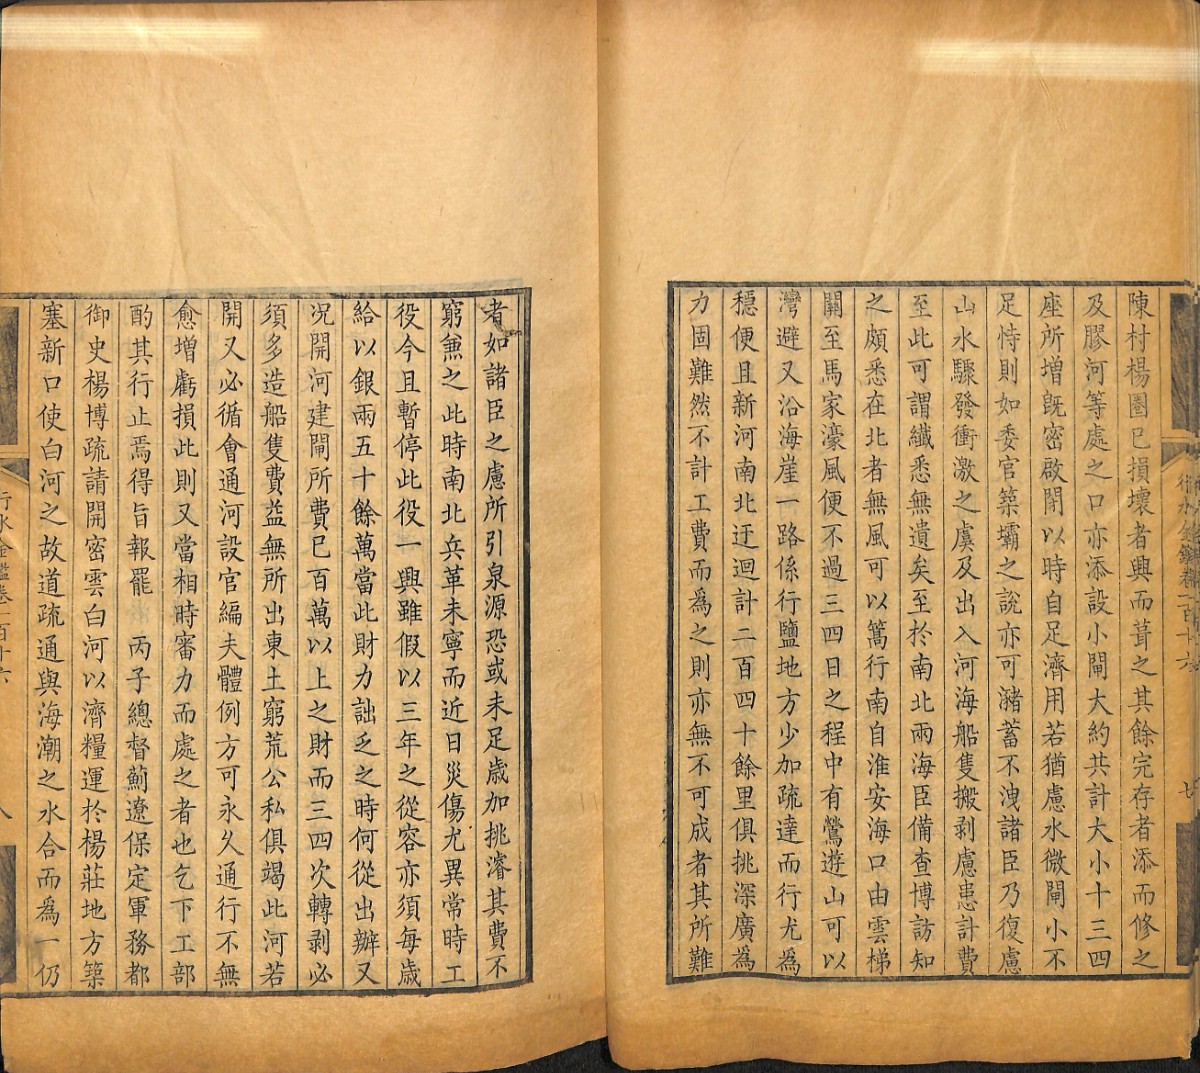 陳村楊圈已損壞者興而葺之其餘完存者添而修之
及膠河等處之口亦添設小閘大約共計大小十三四
座所增旣密啟閉以時自足濟用若猶慮水微閘小不
足恃則如委官築壩之說亦可瀦蓄不洩諸臣乃復慮
山水驟發衝激之虞及出入河海船隻搬剥慮患計費
至此可謂纖悉無遺矣至於南北兩海臣備查博訪知
之頗悉在北者無風可以篙行南自淮安海口由雲梯
關至馬家濠風便不過三四日之程中有鶯遊山可以
灣避又沿海崖一路係行鹽地方少加疏達而行尤爲
穩便且新河南北迂迴計二百四十餘里俱挑深廣爲
力固難然不計工費而爲之則亦無不可成者其所難
者如諸臣之慮所引泉源恐或未足歲加挑濬其費不
窮無之此時南北兵革未寧而近日災傷尤異常時工
役今且暫停此役一興雖假以三年之從容亦須每歲
給以銀兩五十餘萬當此財力詘乏之時何從出辦又
況開河建閘所費已百萬以上之財而三四次轉剥必
須多造船隻費益無所出東土窮荒公私俱竭此河若
開又必循會通河設官編夫體例方可永久通行不無
愈增虧損此則又當相時審力而處之者也乞下工部
酌其行止焉得旨報罷 丙子總督薊遼保定軍務都
御史楊博疏請開密雲白河以濟糧運於楊莊地方築
塞新口使白河之故道疏通與海潮之水合而爲一仍
行水金鑑卷一百十六
八